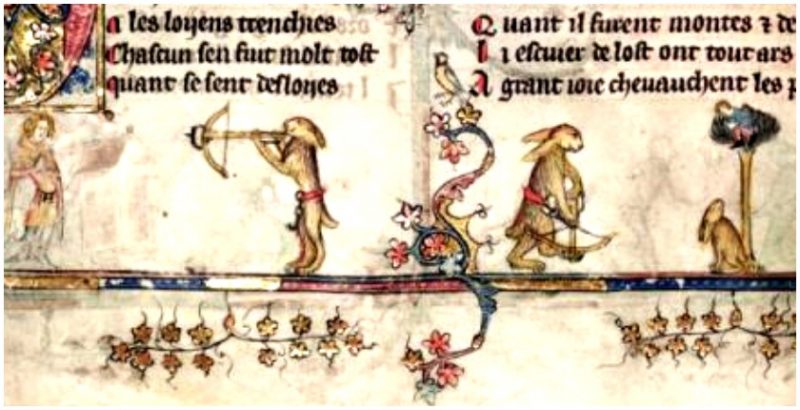 A les loyens trenchies
Chascun sen fuit molt tost
quant se sent desloyes
Quant il furent montes ⁊ de
Li escuier de lost ont tout ars
A grant ioie cheuauchent les p